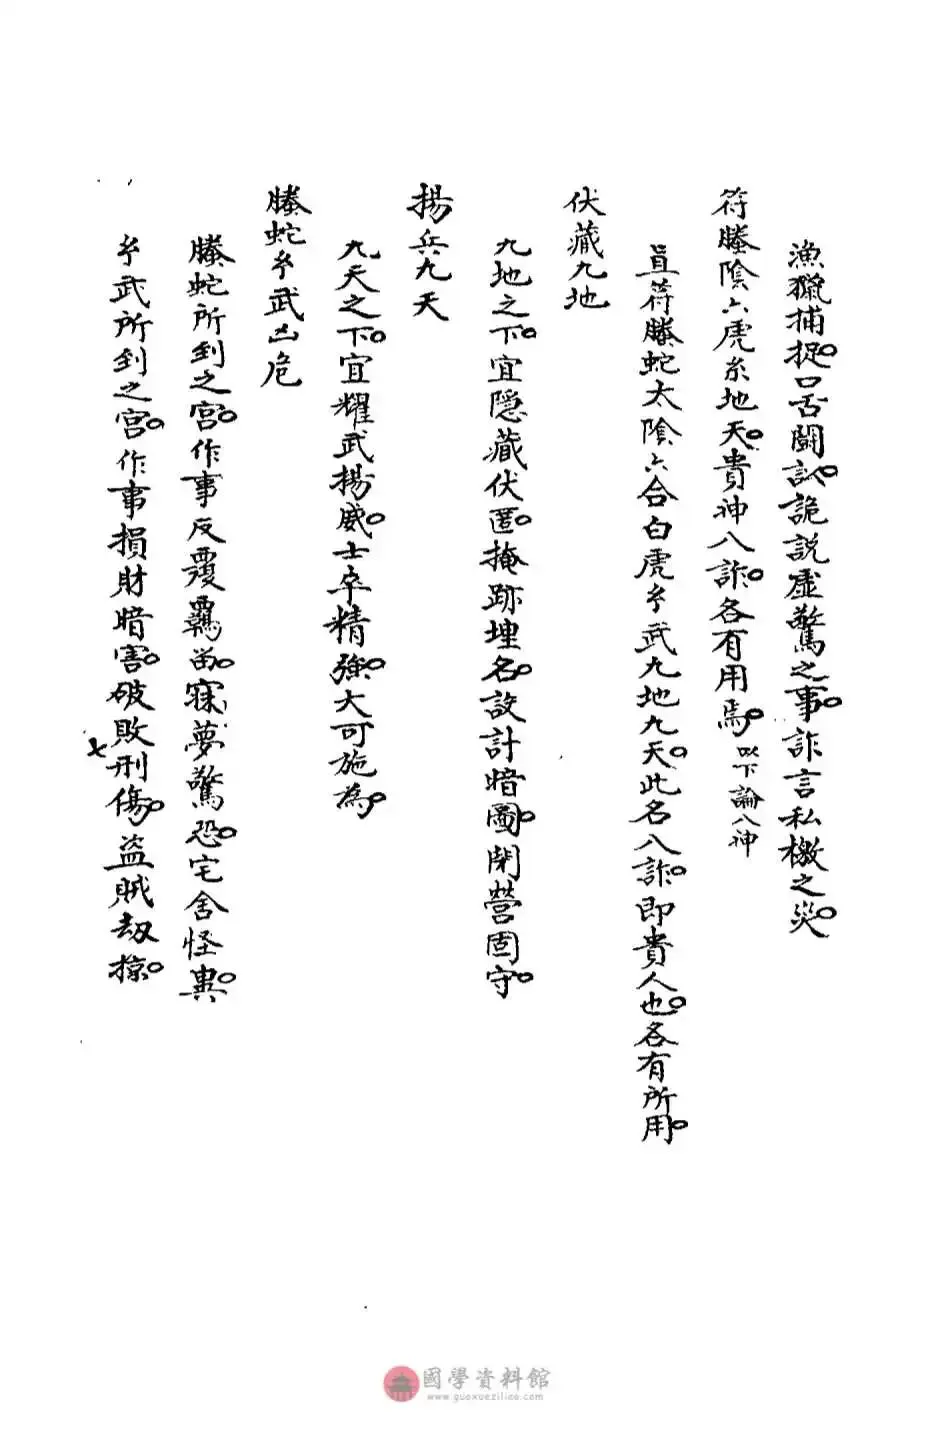 漁獵捕捉。口舌闘訟。詭説虛驚之事。詐言私機之災。
符螣陰六虎玄地天。貴神八詐。各有用焉。以下論八神
直符螣蛇太陰六合白虎玄武九地九天。此名八詐。即貴人也。各有所用。
伏藏九地
九地之下。宜隱藏伏匿。掩跡埋名。設計暗圖。閉營固守。
揚兵九天
九天之下。宜耀武揚威。士卒精強。大可施為。
螣蛇玄武凶危
螣蛇所到之宮。作事反覆羈留。寐夢驚恐。宅舍怪異。
玄武所到之宮。作事損財暗害。破敗刑傷。盜賊劫掠。
七
國學資料館
www.guoxueziliao.com